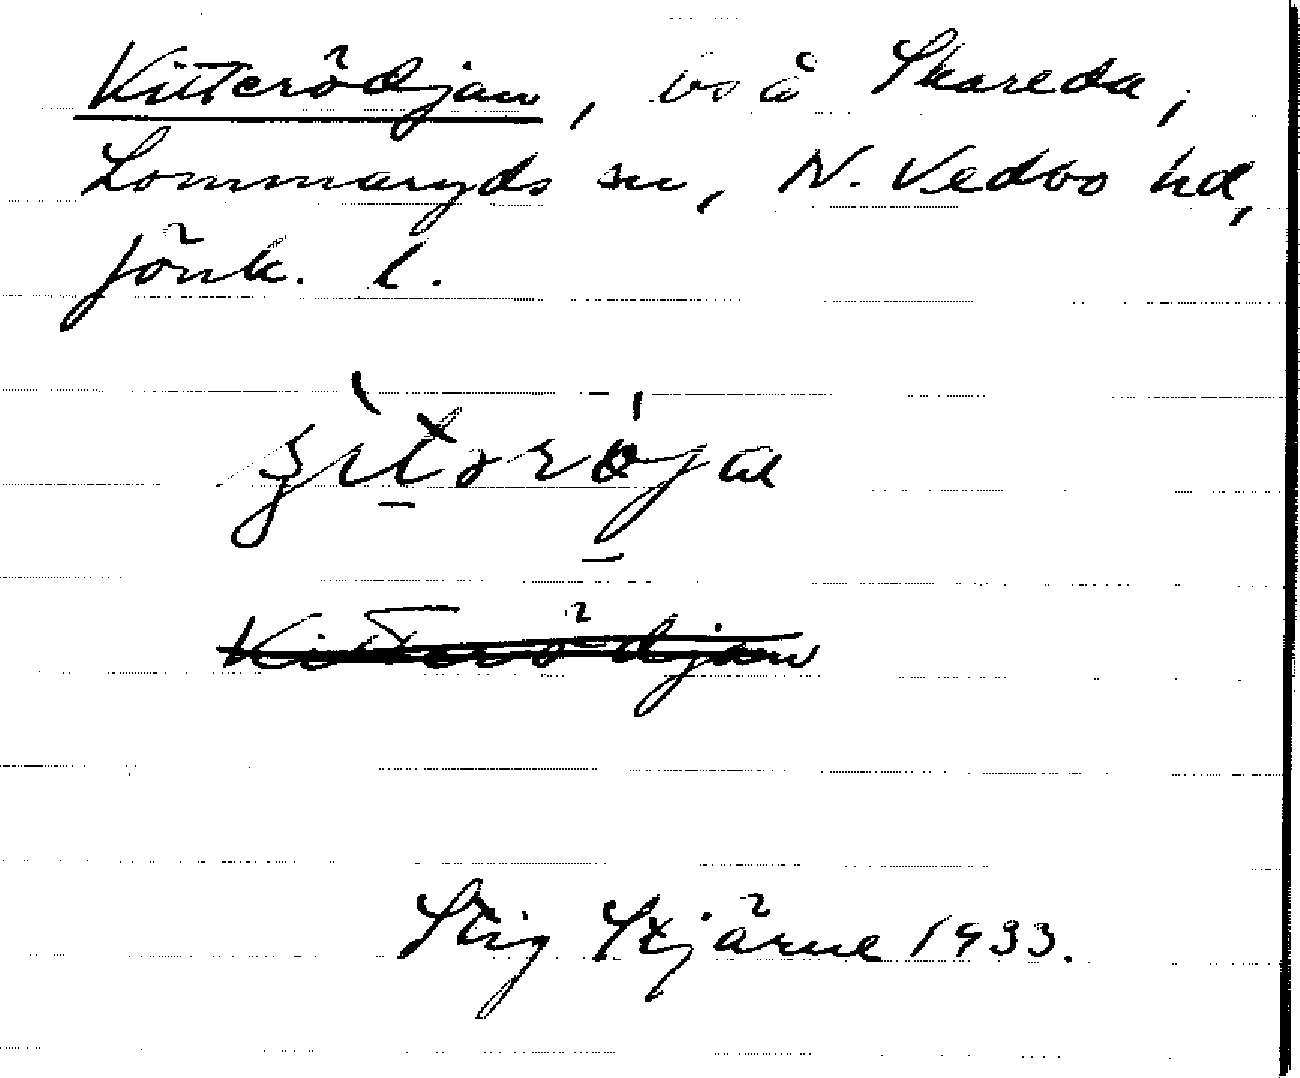 Kitterödjan, bs å Skareda,
Lommaryds sn, N. Vedbo hd,
Jönk. l.
Kitterödjan
Stig Stjärne 1933.